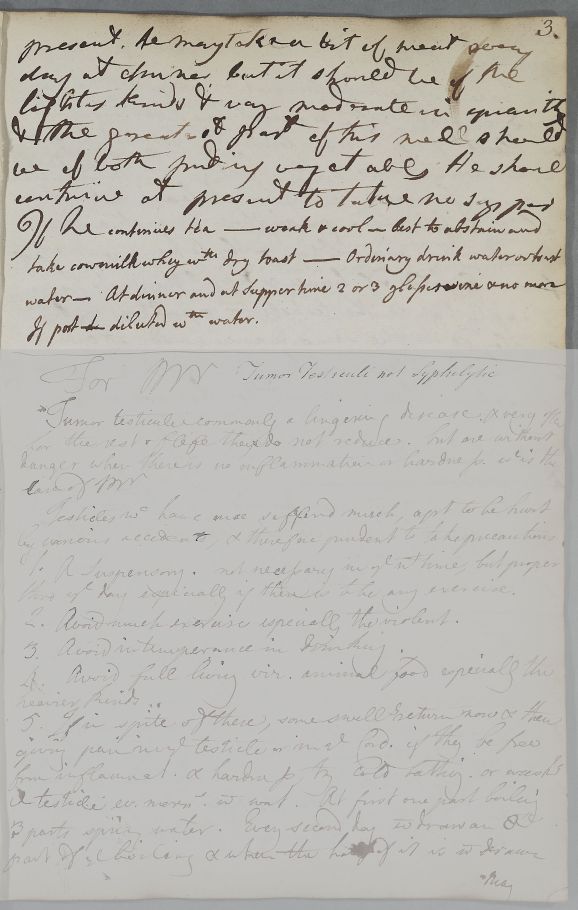 3.
present. He may take a bit of meat every
day at dinner but it should be of the
lightest kinds & very moderate in quantity
& the greatest part of this meal should
be of broth pudding vegetable. He should
contrive at present to take no supper
If he continues tea — weak & cool — best to abstain and
take cowmilk whey wth dry toast — Ordinary drink water or toast
water — At dinner and at supper time 2 or 3 glasses wine & no more
If port diluted wth water.
For Mr Tumor Testiculi not Syphilytic
Tumor testiculi commonly a lingering disease, & very often
for the rest of life they do not reduce. but are without
danger when there is no inflammation or hardness. wc is the
case of Mr
Testicles wc have once suffered much, apt to be hurt
by various accidents, & therefore prudent to take precautions
1. A suspensory. not necessary in ye nt time, but proper
thro ye day especially if there is to be any exercise.
2. Avoid much exercise especially the violent.
3. Avoid intemperance in drinking.
4. Avoid full living viz. animal food especially the
heavier kinds
5. If in spite of these, some swell return now & then
giving pain in ye testicle or in ye Cord. if they be free
from inflammat. & hardness try cold bathing. or wash
testicle ev. morng. wt wat. At first one part boiling
3 parts spring water. Every second day withdraw an 8th
part of ye boiling & when the half of it is withdrawn
May